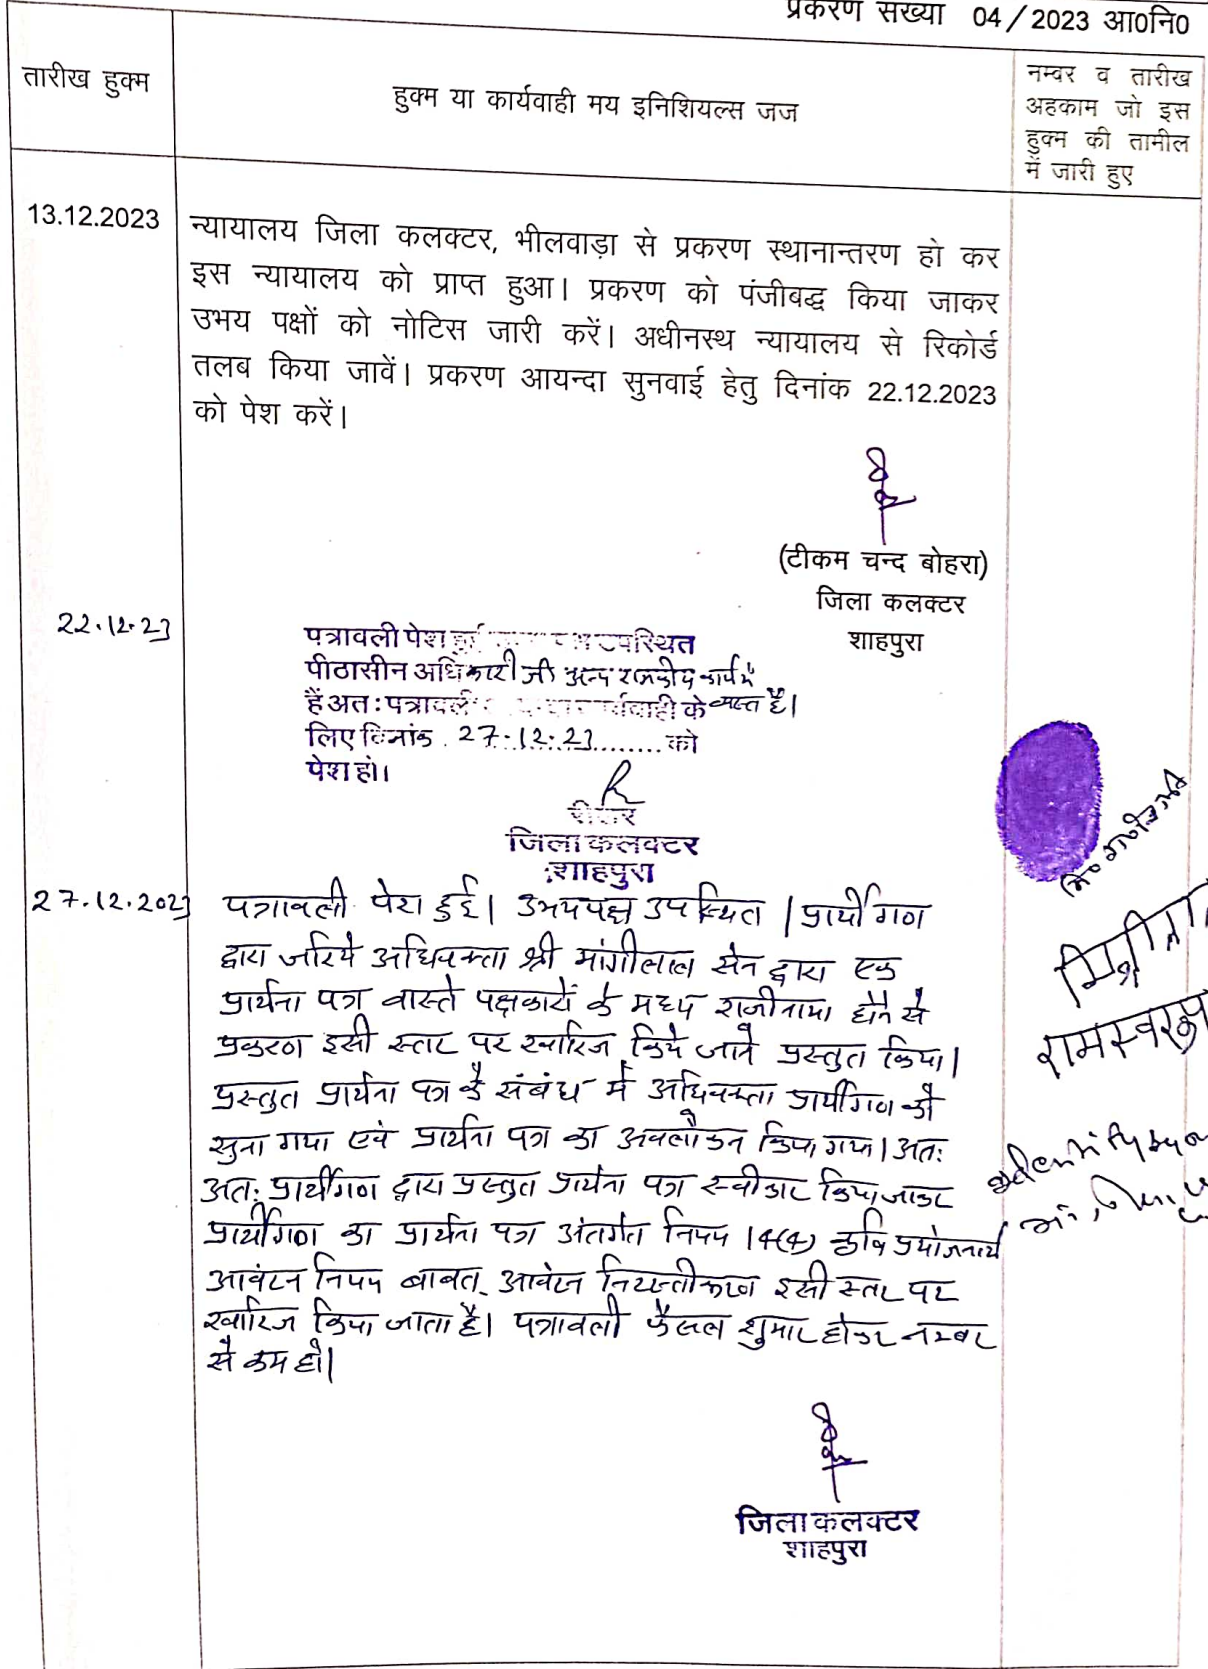 प्रकरण संख्या 04/2023 आ0नि0
तारीख हुक्म
हुक्म या कार्यवाही मय इनिशियल्स जज
नम्वर व तारीख
अहकाम जो इस
हुक्म की तामील
में जारी हुए
13.12.2023
न्यायालय जिला कलक्टर, भीलवाड़ा से प्रकरण स्थानान्तरण हो कर
इस न्यायालय को प्राप्त हुआ। प्रकरण को पंजीबद्ध किया जाकर
उभय पक्षों को नोटिस जारी करें। अधीनस्थ न्यायालय से रिकोर्ड
तलब किया जावें। प्रकरण आयन्दा सुनवाई हेतु दिनांक 22.12.2023
को पेश करें।
(टीकम चन्द बोहरा)
जिला कलक्टर
शाहपुरा
22.12.23
पत्रावली पेश हुई उपस्थित
पीठासीन अधिकारी जी अन्य राजकीय कार्य में
व्यस्त है।
हैं अतः पत्रावली कार्यवाही के
लिए दिनांक 27.12.23 को
पेश हो।
रीडर
जिला कलक्टर
शाहपुरा
27.12.2023
पत्रावली पेश हुई। उभयपक्ष उपस्थित। प्रार्थीगण
द्वारा जरिये अधिवक्ता श्री मांगीलाल सेन द्वारा एक
प्रार्थना पत्र वास्ते पक्षकारों के मध्य राजीनामा होने से
प्रकरण इसी स्तर पर खारिज किये जाने प्रस्तुत किया।
प्रस्तुत प्रार्थना पत्र के संबंध में अधिवक्ता प्रार्थीगण को
सुना गया एवं प्रार्थना पत्र का अवलोकन किया गया। अतः
अतः प्रार्थीगण द्वारा प्रस्तुत प्रार्थना पत्र स्वीकार किया जाकर
प्रार्थीगण का प्रार्थना पत्र अंतर्गत नियम 14(4) कृषि प्रयोजनार्थ
आवंटन नियम बाबत् आवंटन निरस्तीकरण इसी स्तर पर
खारिज किया जाता है। पत्रावली फैसल शुमार होकर नम्बर
से कम हो।
रामस्वरूप
जिला कलक्टर
शाहपुरा